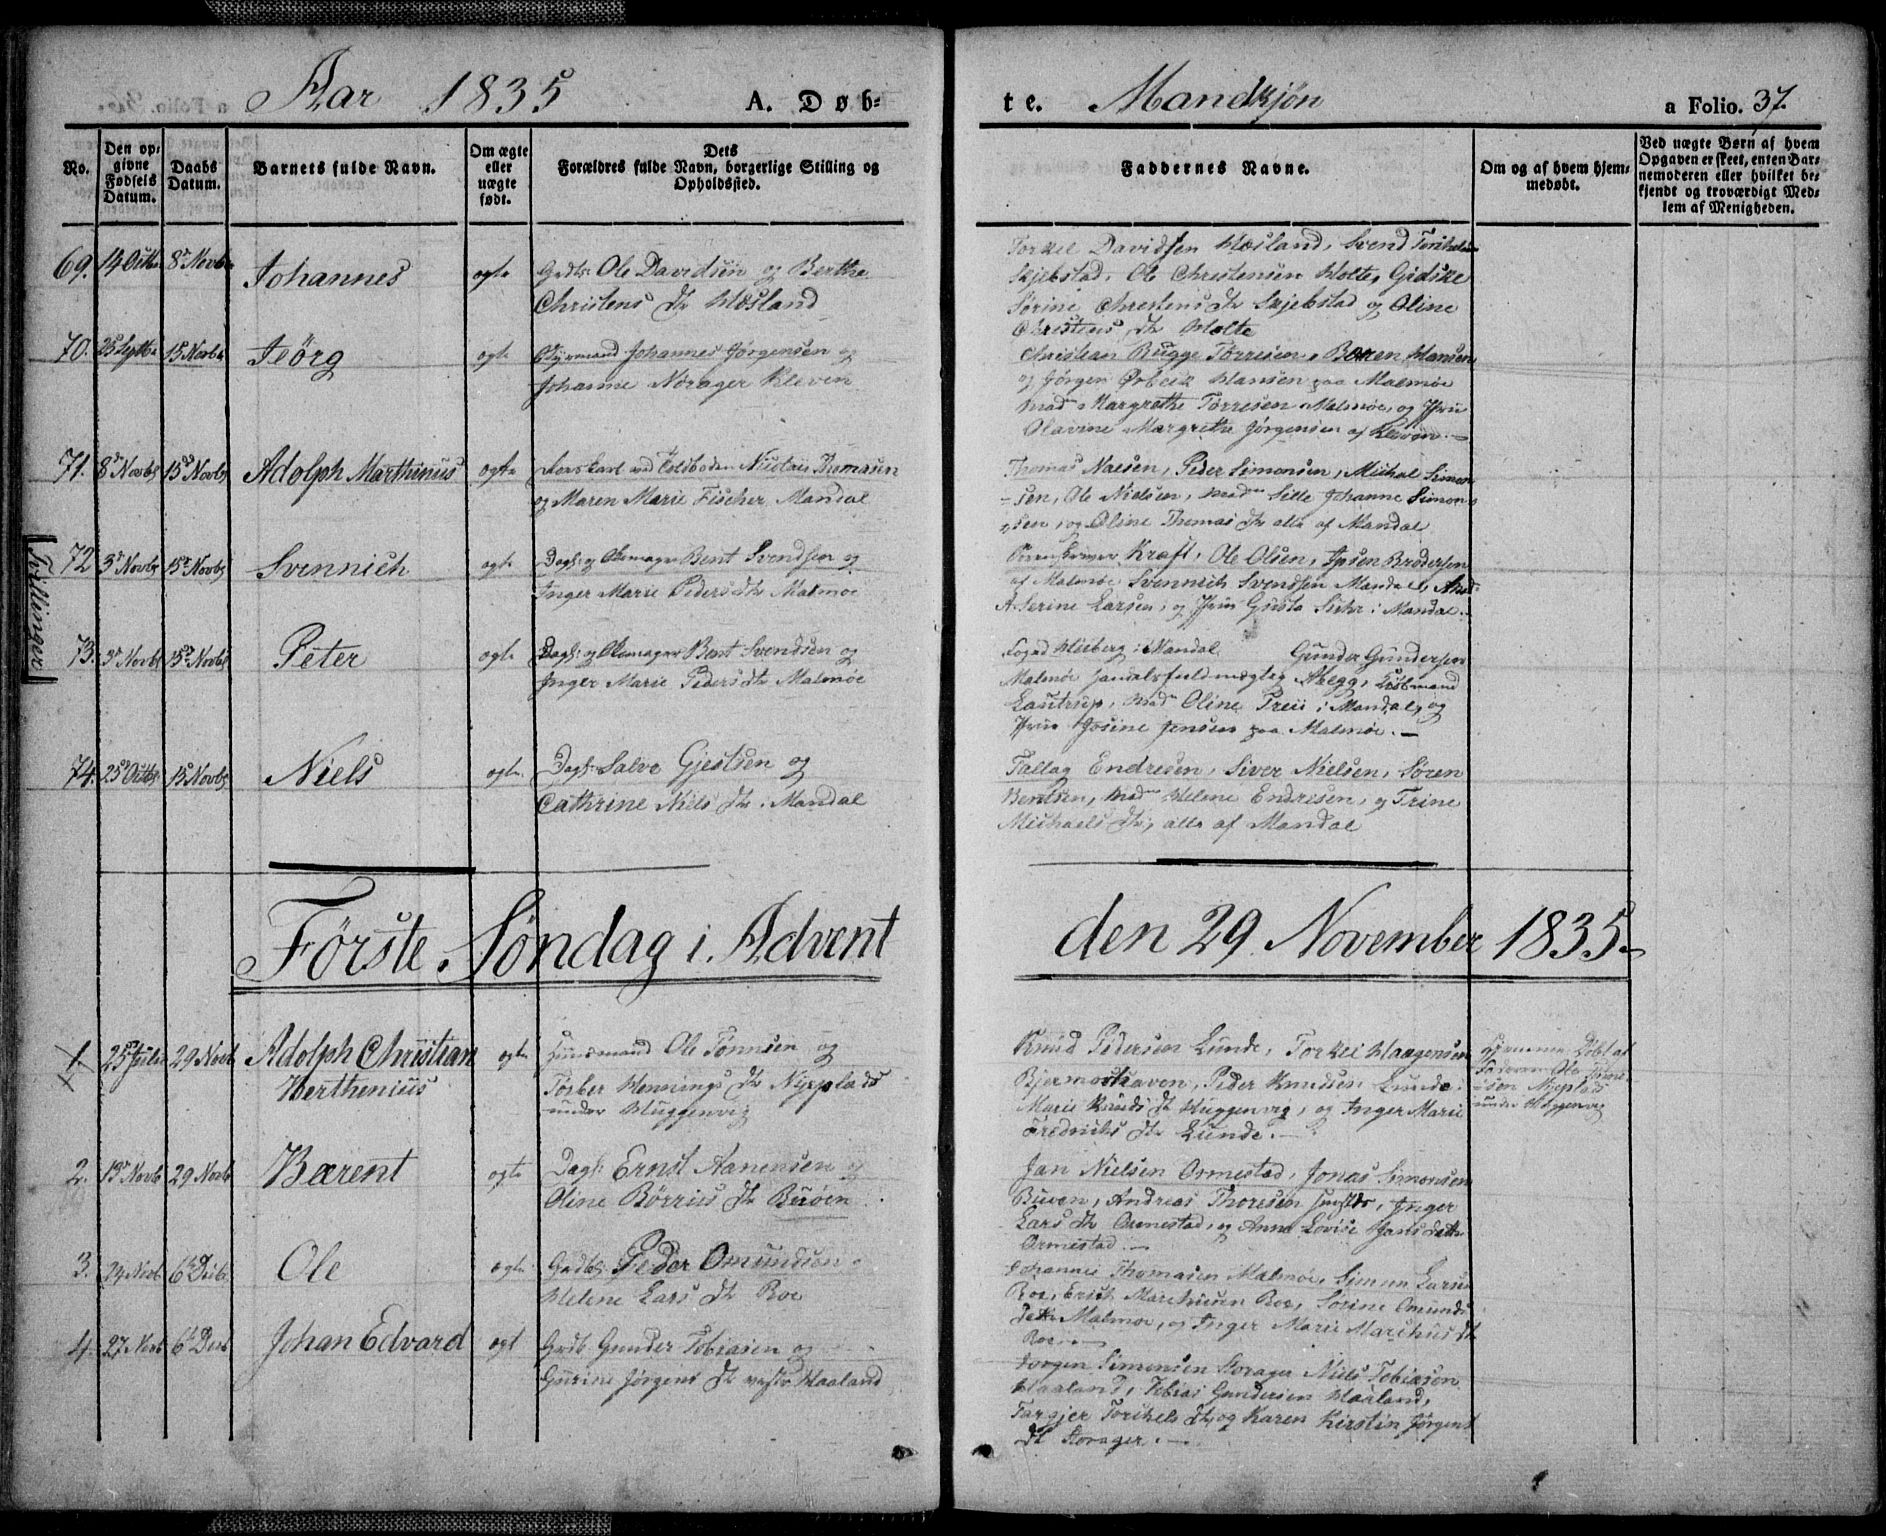 Aar 1835 A. Døb-
te. Mandkjøn a Folio. 37.
No.
Den op-
givne
Fødsels
Datum.
Daabs
Datum.
Barnets fulde Navn.
Om ægte
eller
uægte
født.
Dets
Forældres fulde Navn, borgerlige Stilling og
Opholdssted.
Faddernes Navne.
Om og af hvem hjem-
medøbt.
Ved uægte Børn af hvem
Opgaven er skeet, enten Bar-
nemoderen eller hvilket be-
kjendt og troværdigt Med-
lem af Menigheden.
69. 14 Octb 8r Novb Johannes ægte
Ole Davidsen og Berthe
Christens Dtr Høsland
Torkel Davidsen Høsland, Svend Torkels
Skjebstad, Ole Christensen Holte, Gidske
Sørine Christens Dtr Skjebstad og Oline
Christens Dtr Holte
70. 25 Septb 15 Novb Jeörg ægte
Styrmand Johannes Jørgensen og
Johanne Norager Kleven
Christian Bugge Torresen, Baren Hansen
og Jørgen Hansen paa Malmøe
Mad. Margrethe Torresen Malmøe, og Jfru
Olavine Margrethe Jørgensen af Kleven.
71. 8 Novb 15 Novb Adolph Marthinus ægte
ved Toldboden Thomasen
og Maren Marie Fischer Mandal
Thomas Naesen, Peder Simonsen, Michal Simon
sen, Ole Nielsen, Mad. Sille Johanne Simon
sen, og Oline Thomas Dtr alle af Mandal
Tvillinger
72 3r Novb 15 Novb Svennich ægte
Dagl. og Skomager Bent Svendsen og
Inger Marie Peders Dtr Malmøe
Kraft, Ole Olsen, Ipsen Brodersen
af Malmøe Svennich Svendsen Mandal,
Serine Larsen, og Jfru Gusta i Mandal.
73. 3r Novb 15 Novb Peter ægte
Dagl. og Skomager Bent Svendsen og
Inger Marie Peders Dtr Malmøe
Foged i Mandal Gunder Gundersen
Malmøe Handelsfuldmægtig
Lautrup, Mad. Oline i Mandal, og
Jfru Josine Jensen paa Malmøe.
74. 25 Octb 15 Novb Niels ægte
Dagl. Salve Gjestsen og
Cathrine Niels Dtr i Mandal
Tallag Endresen, Siver Nielsen, Søren
Bentsen, Mad. Helene Endresen, og Trine
Michaels Dtr, alle af Mandal
Første Søndag i Advent den 29 November 1835.
1. 25 Julii 29 Novb Adolph Christian ægte
Herthenius
Huusmand Ole Tønnsen og
Torber Hennings Dtr Nyeplads
under Huggenvig
Knud Pedersen Lunde, Torkel Haagensen
Bjermoskaven, Peder Knudsen Lunde,
Marie Knuds Dtr Huggenvig, og Inger Marie
Fredrichs Dtr Lunde.
Hjemme Døbt af
Faderen Ole
Nyeplads
under Huggenvig
2. 13 Novb 29 Novb Bærent ægte
Dagl. Ernst Aanensen og
Oline Børries Dtr Buøen
Jan Nielsen Ormestad, Jonas Simonsen
Buøen, Andreas Thoresen, Inger
Lars Dtr Ormestad, og Anne Lovise Jans Datter
Ormestad.
3. 24 Novb 6 Decb Ole ægte
Gdb. Peder Omundsen
Helene Lars Dtr Roe
Johannes Thomasen Malmøe, Simon Larsen
Roe, Erich Marchusen Roe, Sørine Omunds
datter Malmøe, og Inger Marie Marchus Dtr
Roe.
4. 27 Novb 6 Decb Johan Edvard ægte
Gdb. Gunder Tobiasen og
Gurine Jørgens Dtr vestre Haaland
Jørgen Simonsen Storager Niels Tobiasen
Haaland, Tobias Gundersen Haaland,
Targjer Torkels Dtr, og Karen Kirstin Jørgens
Dtr Storager.